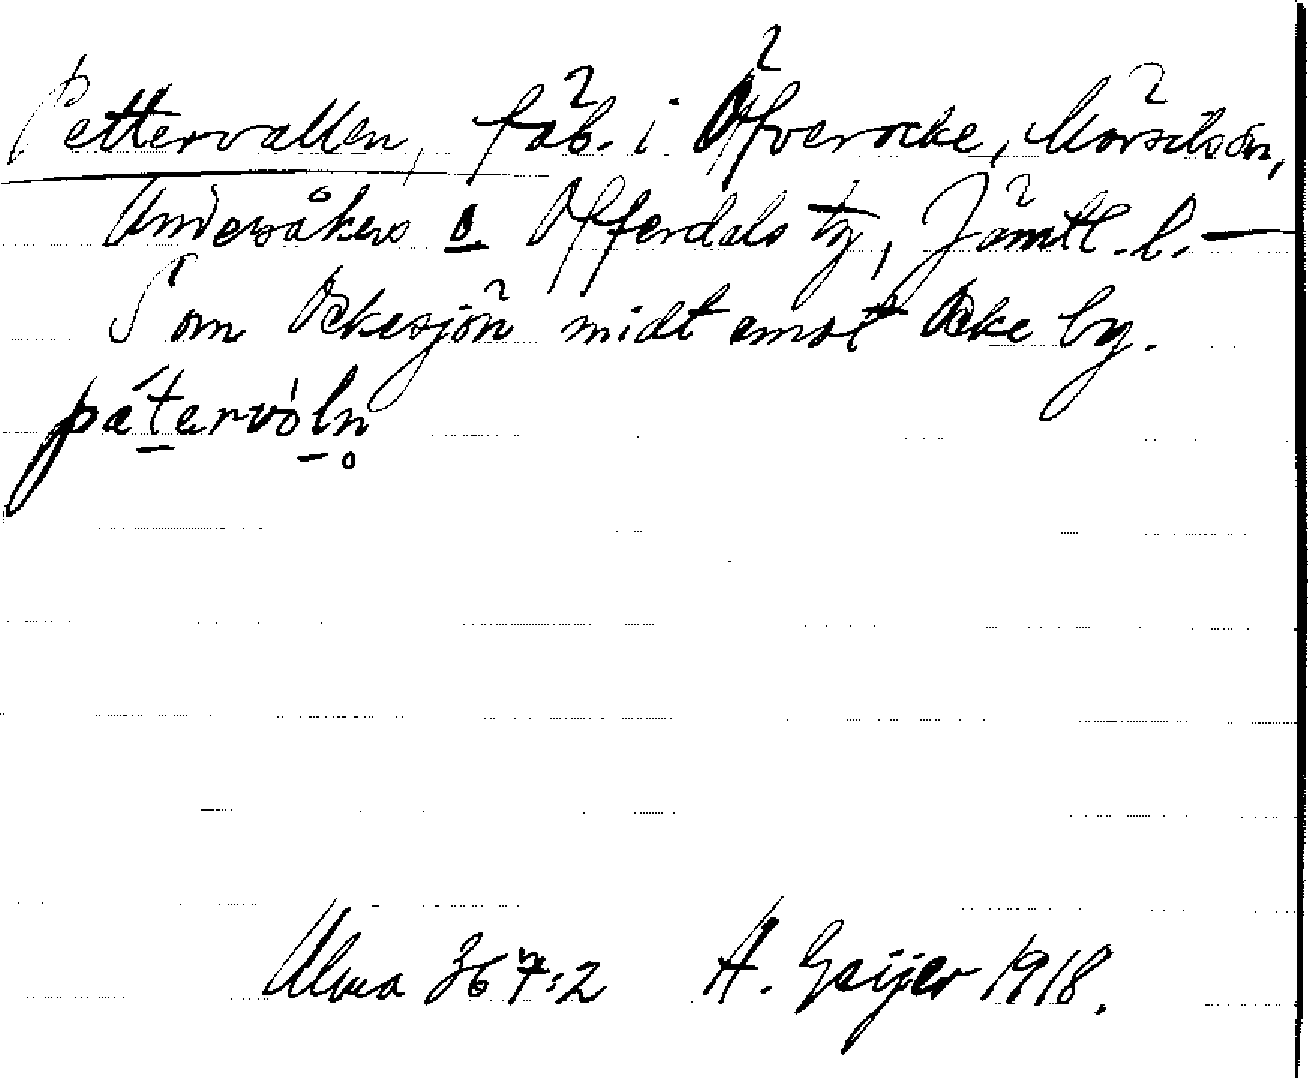 Pettervallen, fäb. i Öfverocke, Mörsils sn,
Undersåkers o Offerdals tg, Jämtl. l. —
S om Ockesjön midt emot Ocke by.
pætarvòln
Ulma 367:2 A. Geijer 1918.